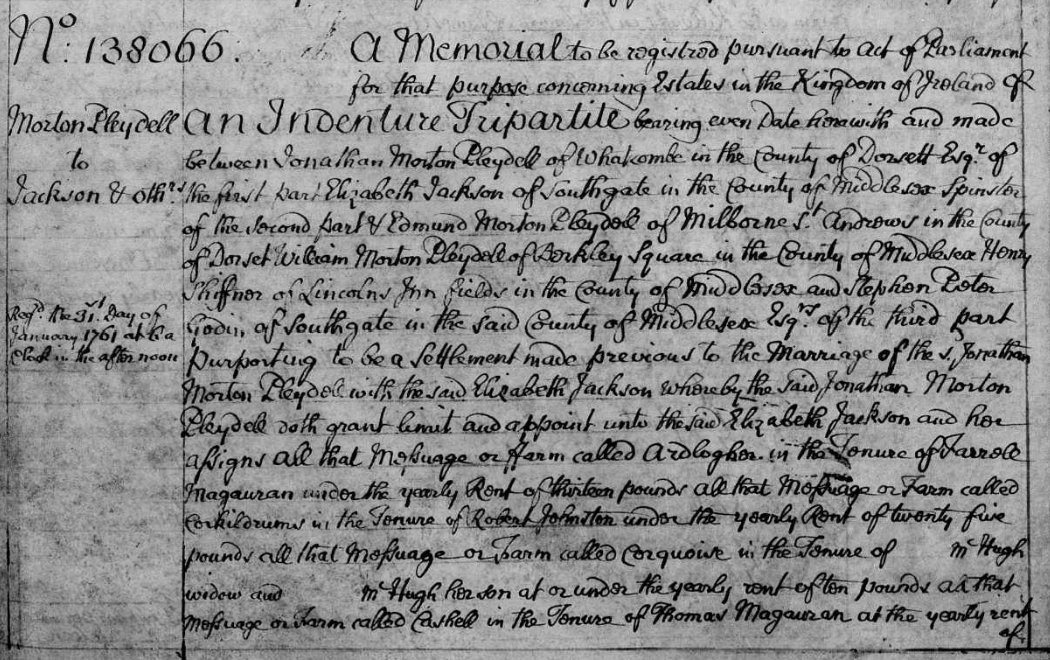 No. 138066.
A Memorial to be registred pursuant to Act of Parliament
for that purpose concerning Estates in the Kingdom of Ireland of
Morton Pleydell
to
Jackson & othrs
An Indenture Tripartite bearing even Date herewith and made
between Jonathan Morton Pleydell of Whatcombe in the County of Dorsett Esqr. of
the first part Elizabeth Jackson of Southgate in the County of Middlesex Spinster
of the second part & Edmund Morton Pleydell of Milborne St. Andrews in the County
of Dorset William Morton Pleydell of Berkley Square in the County of Middlesex Henry
Shiffner of Lincolns Inn fields in the County of Middlesex and Stephen Peter
Godin of Southgate in the said County of Middlesex Esqrs. of the third part
purporting to be a Settlement made previous to the Marriage of the sd. Jonathan
Morton Pleydell with the said Elizabeth Jackson whereby the said Jonathan Morton
Pleydell doth grant limit and appoint unto the said Elizabeth Jackson and her
assigns all that Messuage or Farm called Ardlogher in the Tenure of Farrell
Magauran under the yearly Rent of thirteen pounds all that Messuage or Farm called
Corkildrums in the Tenure of Robert Johnston under the yearly Rent of twenty five
pounds all that Messuage or Farm called Corquoise in the Tenure of McHugh
widow and McHugh her son at or under the yearly rent of ten pounds all that
Messuage or Farm called Cashell in the Tenure of Thomas Magauran at the yearly rent
of
Regd. the 31st. Day of
January 1761 at 6 a
Clock in the afternoon